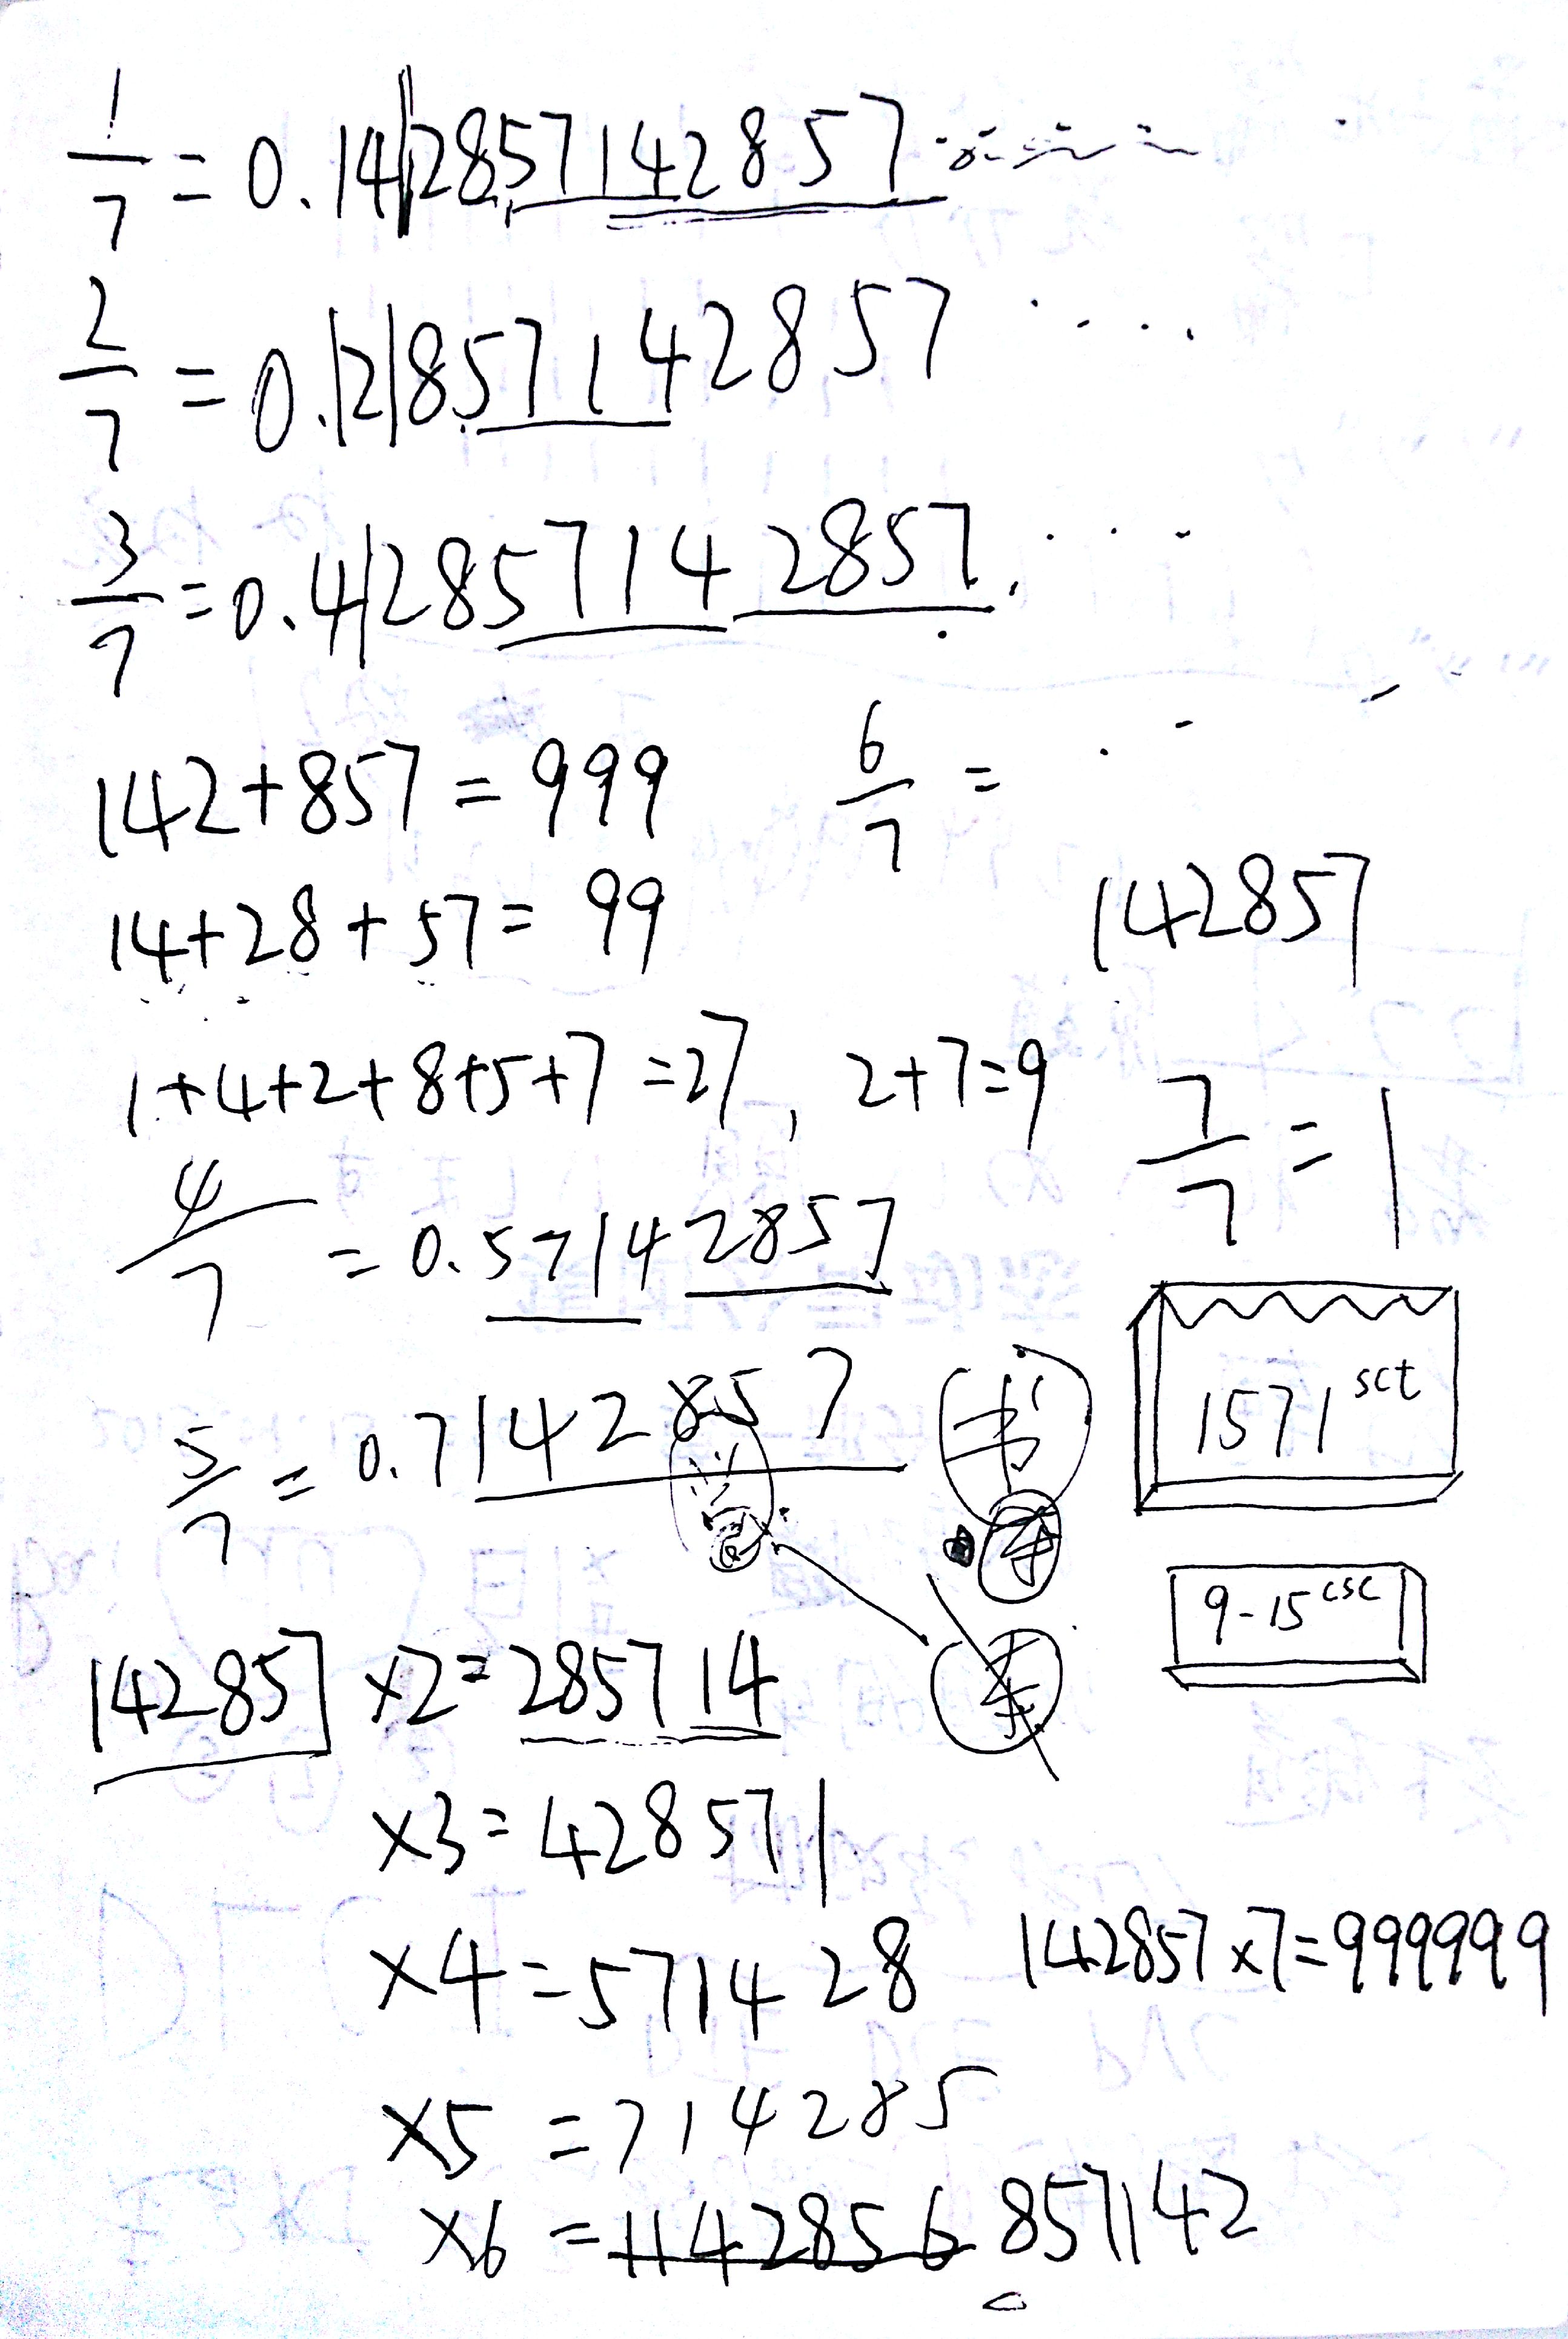 1/7 = 0.142857142857......
2/7 = 0.2857142857....
3/7 = 0.42857142857....
142+857=999
6/7 =
14+28+57=99
142857
1+4+2+8+5+7=27, 2+7=9
7/7=1
4/7 = 0.57142857
5/7 = 0.7142857
书
本
1571 sct
9-15 csc
142857 ×2=285714
×3=428571
×4=571428
142857×7=999999
×5=714285
×6=1142856 857142